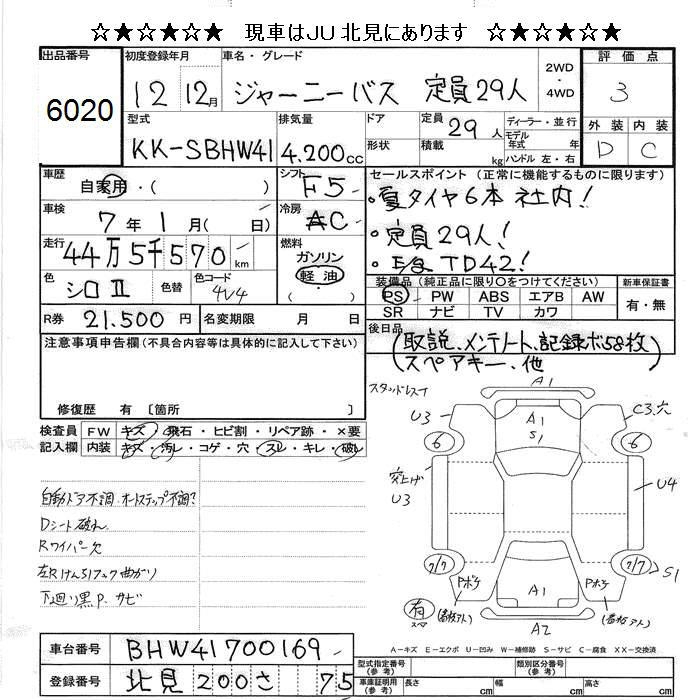 ☆★☆★☆★ 現車はJU北見にあります ☆★☆★☆★
出品番号 初度登録年月 車名・グレード 2WD・4WD 評価点
6020 12 12月 ジャーニーバス 定員29人 3
型式 排気量 ドア 定員 29人 ディーラー・並行 外装 内装
KK-SBHW41 4.200cc 形状 積載 kg モデル年式 年式 ハンドル 左・右 D C
車歴 自家用・( ) シフト F5 セールスポイント (正常に機能するものに限ります)
車検 7年1月( 日) 冷房 AC ・夏タイヤ6本 社内!
走行 44万5千570 km 燃料 ガソリン 軽油 ( ) ・定員29人!
・ TD42!
色 シロⅡ 色替 色コード 4V4
装備品(純正品に限り○をつけてください) 新車保証書
PS PW ABS エアB AW 有・無
SR ナビ TV カワ
R券 21.500円 名変期限 月 日 後日品
(取説、メンテノート、記録ボ58枚)
スペアキー、他
注意事項申告欄(不具合内容等は具体的に記入して下さい)
修復歴 有 〔箇所 〕
検査員 FW キズ・飛石・ヒビ割・リペア跡・×要
記入欄 内装 キズ・汚レ・コゲ・穴・スレ・キレ・破レ
自動ドア不調 オートステップ不調?
Dシート破れ
Rワイパー欠
左R 曲がり
下廻り黒P. サビ
A1
U3 A1 S1 C3.穴
6 6
U3 U4
7/7 7/7 S1
Pボケ A1 Pボケ
有 スペア (看板アト) (看板アト)
A2
A-キズ E-エクボ U-凹み W-補修跡 S-サビ C-腐食 XX-交換済
車台番号 BHW41700169
登録番号 北見200さ 75
型式指定番号(参考) 類別区分番号(参考)
車庫証明用(参考) 長さ cm 幅 cm 高さ cm